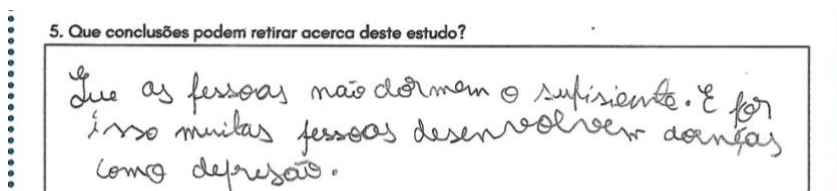 5. Que conclusões podem retirar acerca deste estudo?
Que as pessoas não dormem o sufisiente. E por
isso muitas pessoas desenvolvem doenças
como depresão.